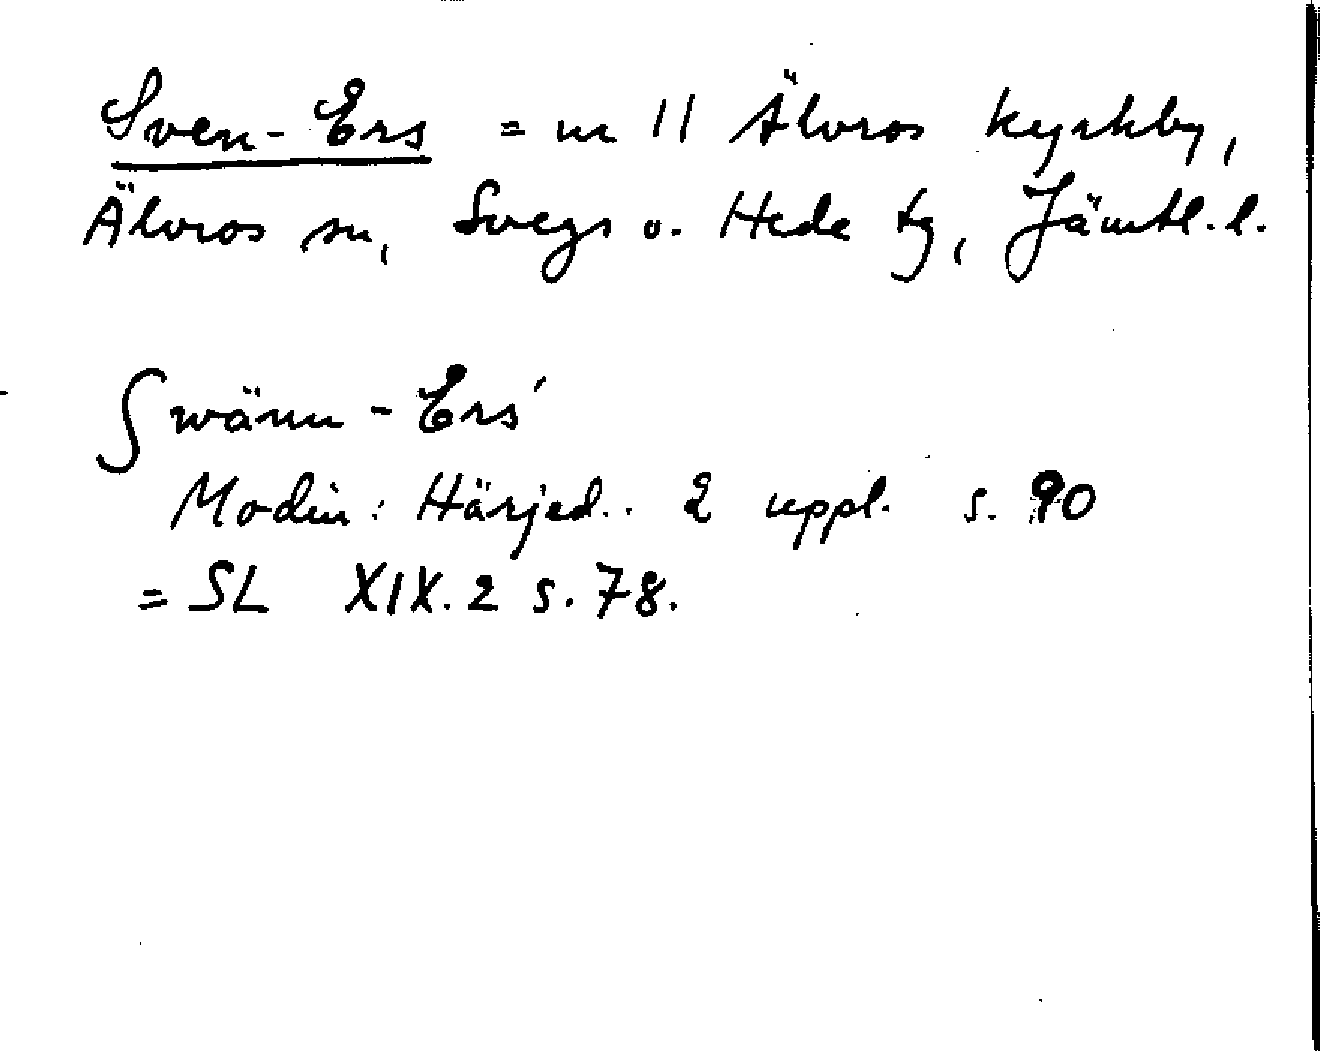 Sven-Ers = nr 11 Älvros kyrkby,
Älvros sn, Svegs o. Hede tg, Jämtl. l.
ſwänn-Ers'
Modin: Härjed.. 2 uppl. s. 90
= SL XIX.2 s. 78.